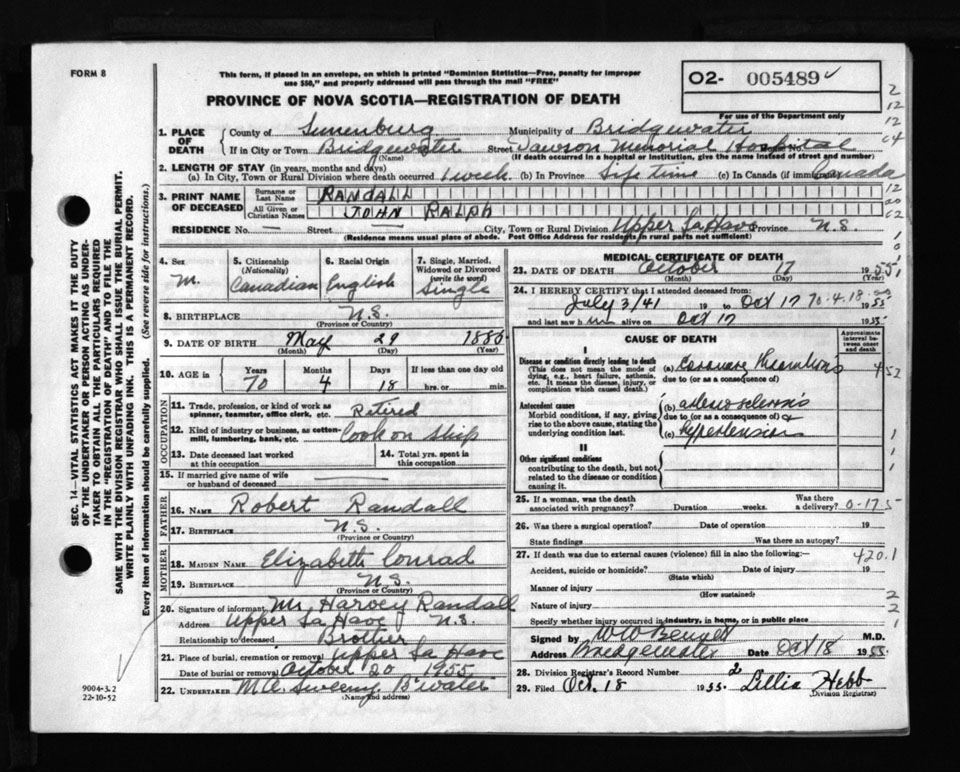 FORM 8
This form, if placed in an envelope, on which is printed "Dominion Statistics—Free, penalty for improper
use $50," and properly addressed will pass through the mail "FREE"
PROVINCE OF NOVA SCOTIA—REGISTRATION OF DEATH
O2- 005489
For use of the Department only
1. PLACE OF DEATH
County of Lunenburg Municipality of Bridgewater
If in City or Town Bridgewater Street Dawson Memorial Hospital
(Name) (If death occurred in a hospital or institution, give the name instead of street and number)
2. LENGTH OF STAY (in years, months and days)
(a) In City, Town or Rural Division where death occurred 1 week. (b) In Province Life time (c) In Canada (if immigrant) Canada
3. PRINT NAME OF DECEASED
Surname or Last Name RANDALL
All Given or Christian Names JOHN RALPH
RESIDENCE No. — Street — City, Town or Rural Division Upper La Have Province N.S.
(Residence means usual place of abode. Post Office Address for residents in rural parts not sufficient)
4. Sex
M.
5. Citizenship
(Nationality)
Canadian
6. Racial Origin
English
7. Single, Married, Widowed or Divorced
(write the word)
Single
8. BIRTHPLACE N.S.
(Province or Country)
9. DATE OF BIRTH May 29 1885
(Month) (Day) (Year)
10. AGE in
Years Months Days If less than one day old
70 4 18 hrs. or min.
OCCUPATION
11. Trade, profession, or kind of work as
spinner, teamster, office clerk, etc. Retired
12. Kind of industry or business, as cotten-
mill, lumbering, bank, etc. Cook on ship
13. Date deceased last worked
at this occupation
14. Total yrs. spent in
this occupation
15. If married give name of wife
or husband of deceased
FATHER
16. Name Robert Randall
17. Birthplace N.S.
(Province or Country)
MOTHER
18. MAIDEN NAME Elizabeth Conrad
19. Birthplace N.S.
(Province or Country)
20. Signature of informant Mr. Harvey Randall
Address Upper La Have N.S.
Relationship to deceased Brother
21. Place of burial, cremation or removal Upper La Have
Date of burial or removal October 20 1955
22. UNDERTAKER M.A. Sweeny B'water
(Name and address)
MEDICAL CERTIFICATE OF DEATH
23. DATE OF DEATH October 17 1955
(Month) (Day) (Year)
24. I HEREBY CERTIFY that I attended deceased from:
July 3/41 19 to Oct 17 1955
70.4.18
and last saw him alive on Oct 17 1955
CAUSE OF DEATH
Approximate interval between onset and death
I
Disease or condition directly leading to death
(This does not mean the mode of dying, e.g., heart failure, asthenia, etc. It means the disease, injury, or complication which caused death.)
(a) Coronary Thrombosis
due to (or as a consequence of)
Antecedent causes
Morbid conditions, if any, giving rise to the above cause, stating the underlying condition last.
(b) arteriosclerosis
due to (or as a consequence of) &
(c) Hypertension
II
Other significant conditions
contributing to the death, but not related to the disease or condition causing it.
25. If a woman, was the death
associated with pregnancy? Duration weeks.
Was there a delivery?
0-17.5
26. Was there a surgical operation? Date of operation 19
State findings Was there an autopsy?
27. If death was due to external causes (violence) fill in also the following:—
420.1
Accident, suicide or homicide? Date of injury 19
(State which)
Manner of injury
(How sustained)
Nature of injury
Specify whether injury occurred in industry, in home, or in public place
Signed by W W Bennett M.D.
Address Bridgewater Date Oct 18 1955.
28. Division Registrar's Record Number 2
29. Filed Oct. 18 1955 Lillia Hebb
(Division Registrar)
SEC. 14—VITAL STATISTICS ACT MAKES IT THE DUTY
OF THE UNDERTAKER OR PERSON ACTING AS UNDER-
TAKER TO OBTAIN ALL THE PARTICULARS REQUIRED
IN THE "REGISTRATION OF DEATH" AND TO FILE THE
SAME WITH THE DIVISION REGISTRAR WHO SHALL ISSUE THE BURIAL PERMIT.
WRITE PLAINLY WITH UNFADING INK. THIS IS A PERMANENT RECORD.
Every item of information should be carefully supplied. (See reverse side for instructions.)
9004-3.2
22-10-52